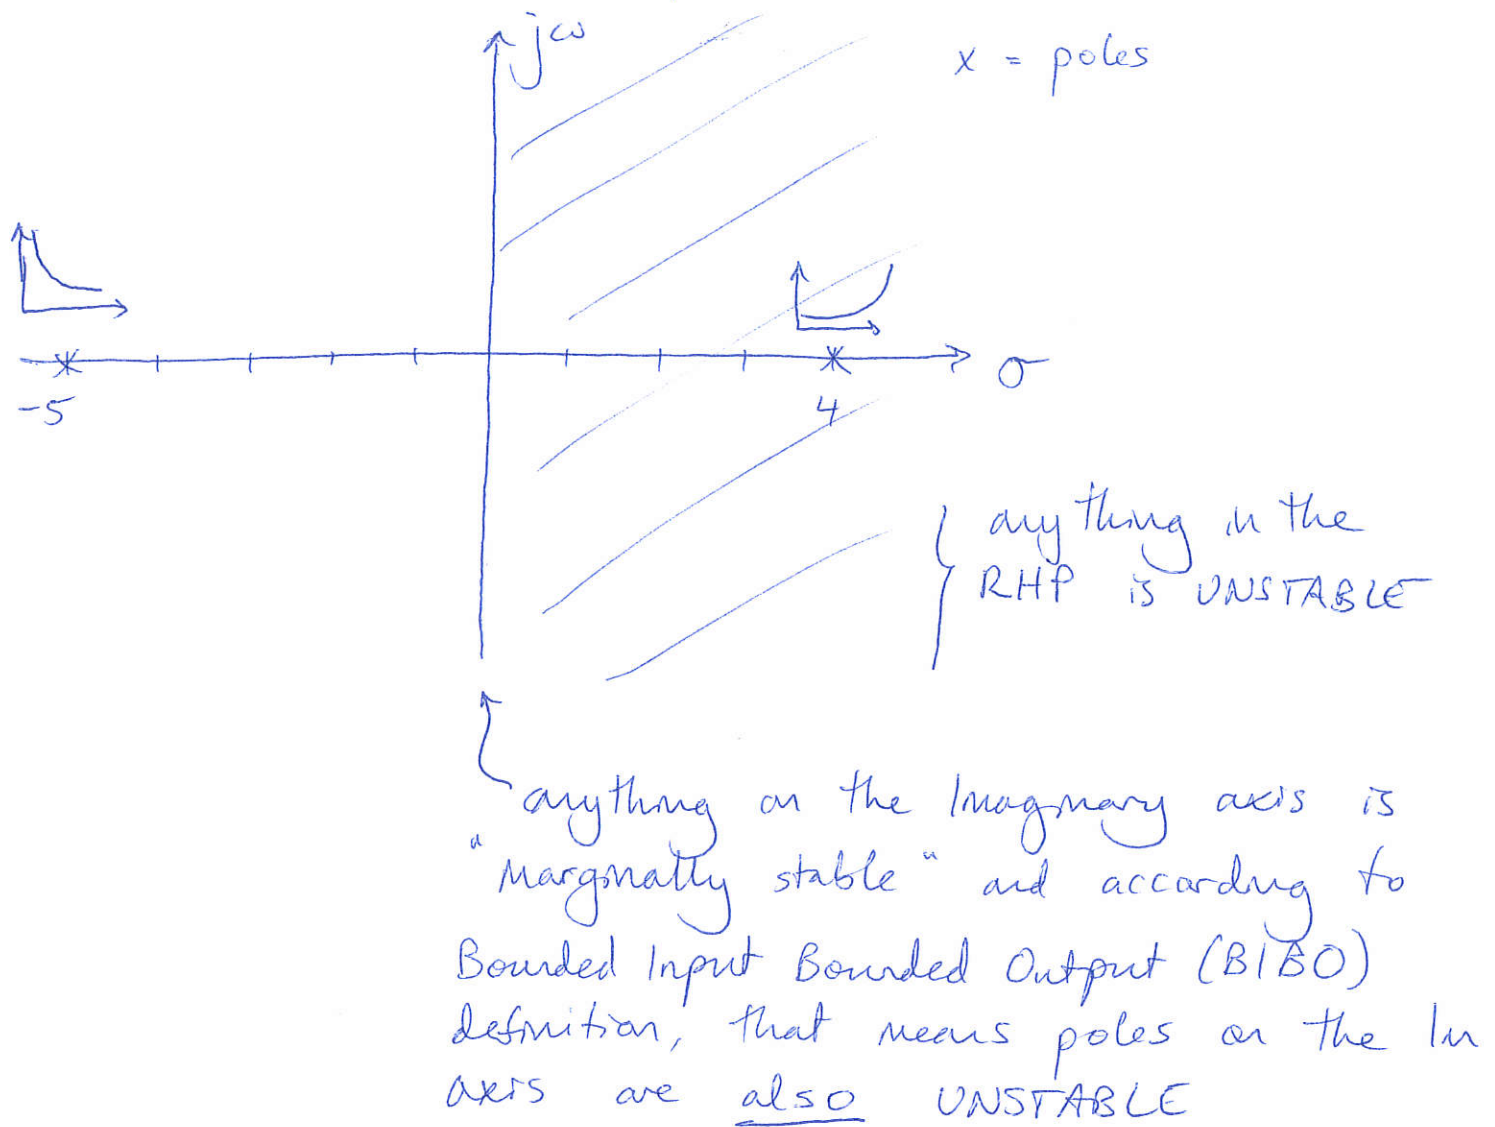 jω
x = poles
σ
-5
4
anything in the
RHP is UNSTABLE
anything on the Imaginary axis is
"marginally stable" and according to
Bounded Input Bounded Output (BIBO)
definition, that means poles on the Im
axis are also UNSTABLE